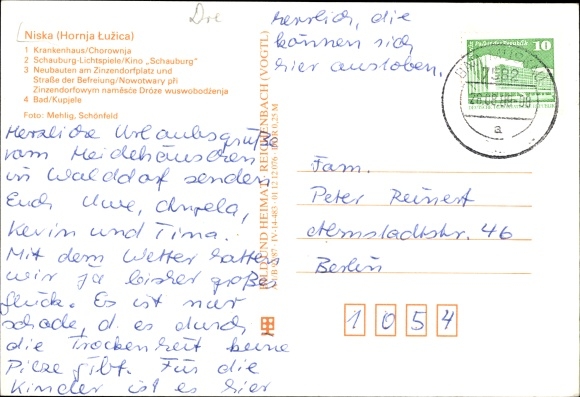 Dre
Niska (Hornja Łužica)
1 Krankenhaus/Chorownja
2 Schauburg-Lichtspiele/Kino „Schauburg“
3 Neubauten am Zinzendorfplatz und
Straße der Befreiung/Nowotwary při
Zinzendorfowym naměsće Dróze wuswobodźenja
4 Bad/Kupjele
Foto: Mehlig, Schönfeld
Herzliche Urlaubsgrüße
vom Heidehäuschen
in Walddorf senden
Euch Uwe, Angela,
Kevin und Tima.
Mit dem Wetter hatten
wir ja bisher großes
Glück. Es ist nur
schade, d. es durch
die Trockenheit keine
Pilze gibt. Für die
Kinder ist es hier
herrlich, die
können sich
hier austoben.
BILD UND HEIMAT, REICHENBACH (VOGTL)
IV-14-483 01 12 12 076 0,25 M
10
a
Fam.
Peter Reinert
Armstadtstr. 46
Berlin
1054